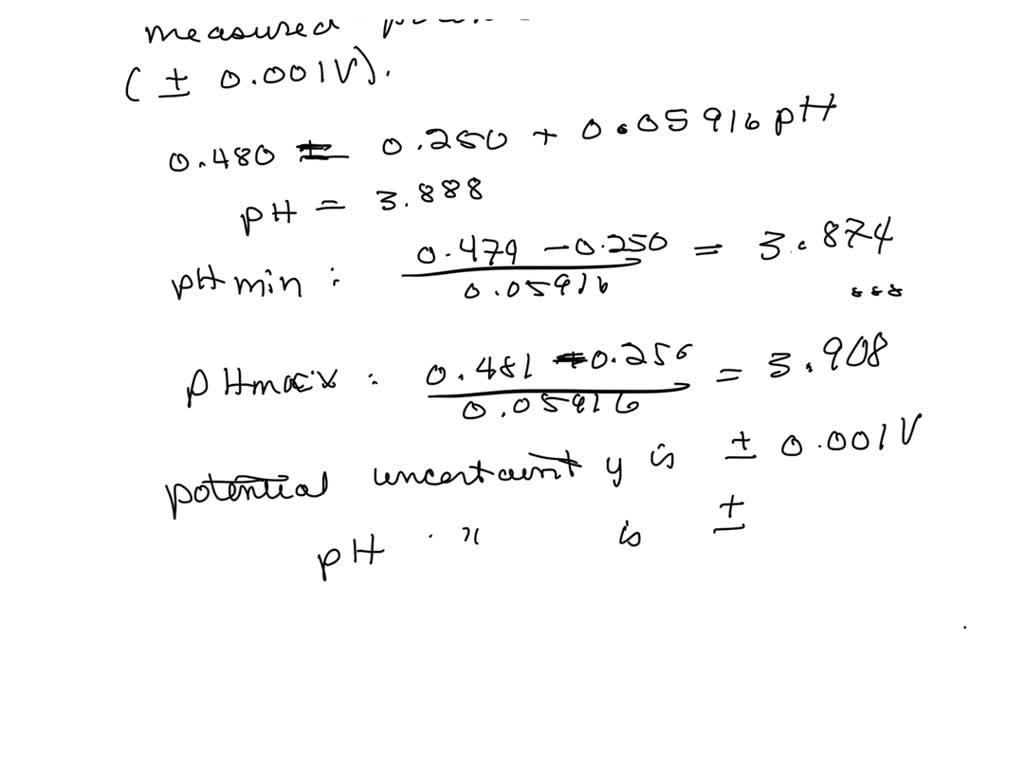 measured
(± 0.001V).
0.480 = 0.250 + 0.05916 pH
pH = 3.888
pH min : 0.479 - 0.250 / 0.05916 = 3.874
pHmax : 0.481 - 0.250 / 0.05916 = 3.908
potential uncertainty is ± 0.001V
pH " is ±